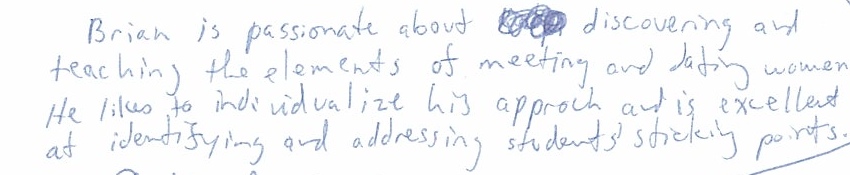 Brian is passionate about discovering and
teaching the elements of meeting and dating women
He likes to individualize his approch and is excellent
at identifying and addressing students' sticking points.